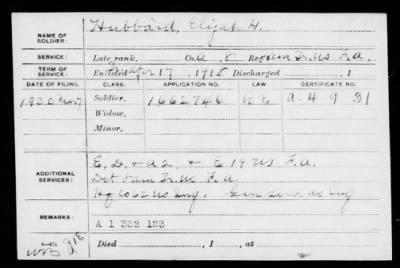 NAME OF SOLDIER: Hubbard, Elijah H.
SERVICE: Late rank, Co. Tr. US F.A.
TERM OF SERVICE: Enlisted Apr 17, 1918 Discharged , 1
DATE OF FILING. CLASS. APPLICATION NO. LAW CERTIFICATE NO.
1930 Nov 7 Soldier, 1662746 A-4 9 31
Widow,
Minor,
ADDITIONAL SERVICES: E, D, + A 2, + E 19 US F.A.
Det Tr. US F.A.
Hq Co 62 US Eng.
REMARKS: A 1 332 123
Died , 1 , at